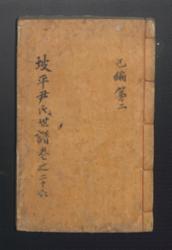 己編 第二
坡平尹氏世譜卷之二十六